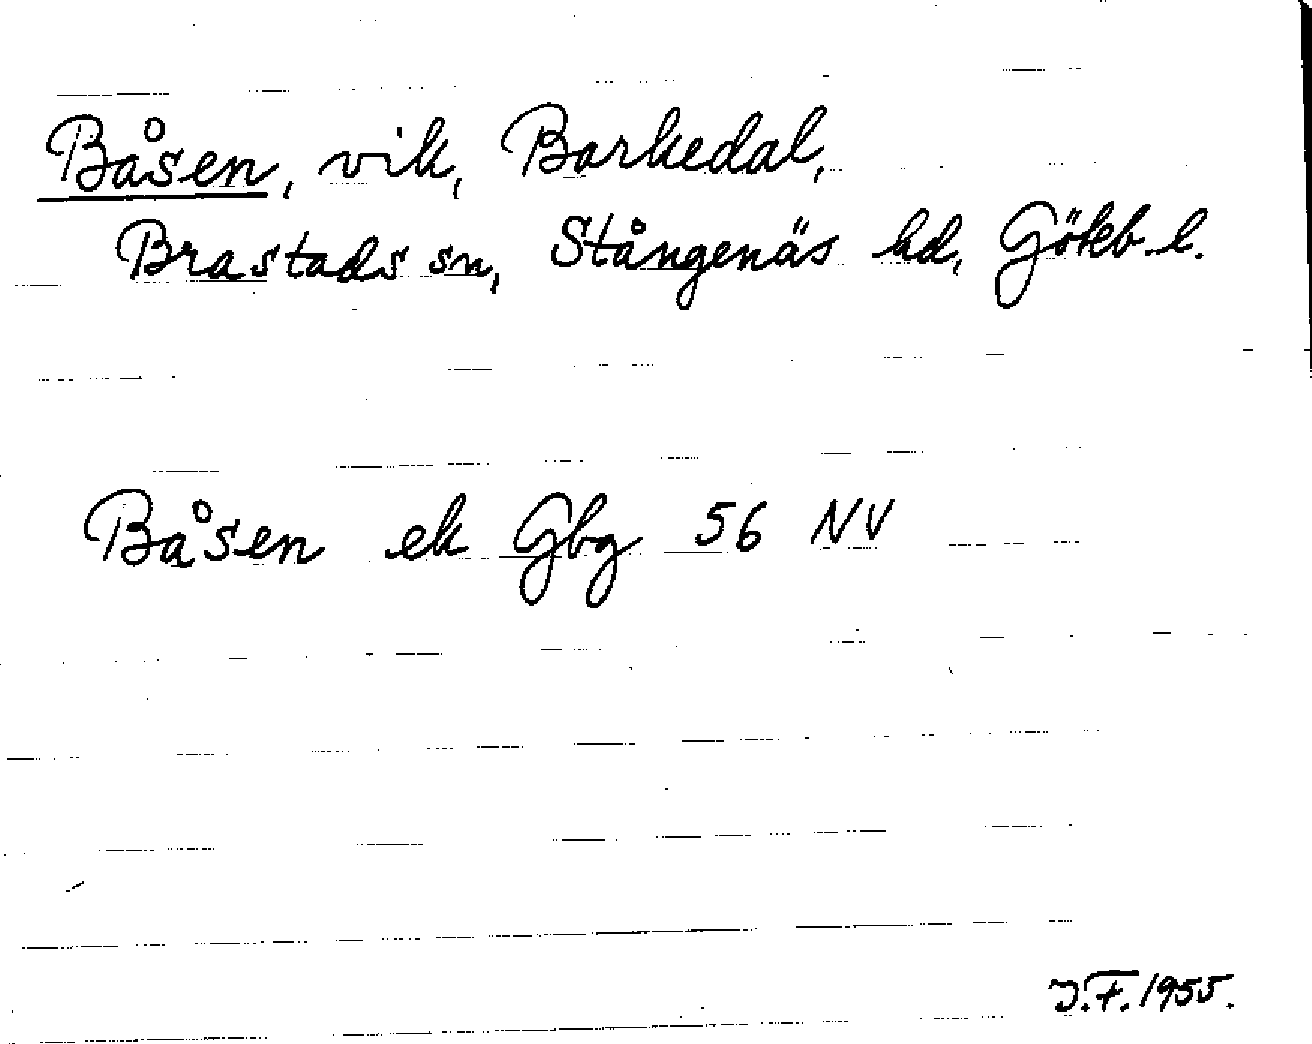 Båsen, vik, Barkedal,
Brastads sn, Stångenäs hd, Göteb. l.
Båsen ek Gbg 56 NV
J.F. 1955.